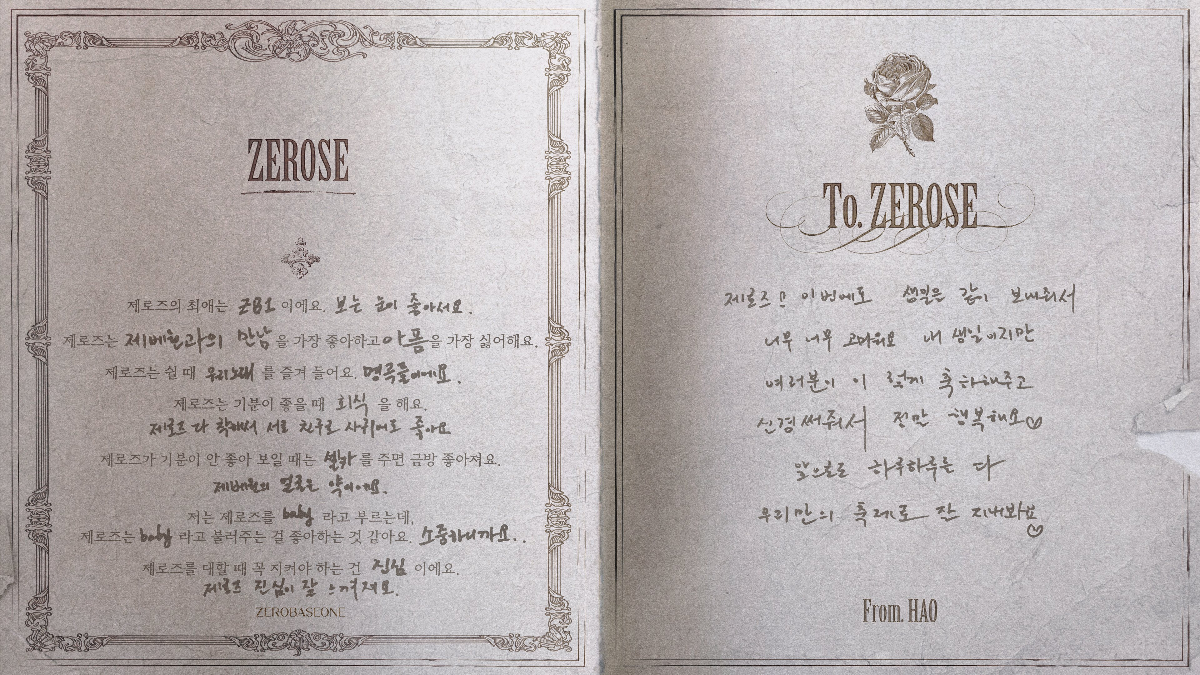 ZEROSE
제로즈의 최애는 ZB1 이에요. 보는 눈이 좋아서요.
제로즈는 제베원과의 만남 을 가장 좋아하고 아픔 을 가장 싫어해요.
제로즈는 쉴 때 우리노래 를 즐겨 들어요. 명곡들이에요.
제로즈는 기분이 좋을 때 회식 을 해요.
제로즈 다 착해서 서로 친구로 사귀어도 좋아요
제로즈가 기분이 안 좋아 보일 때는 셀카 를 주면 금방 좋아져요.
제베원의 얼굴은 약이에요.
저는 제로즈를 baby 라고 부르는데,
제로즈는 baby 라고 불러주는 걸 좋아하는 것 같아요. 소중하니까요..
제로즈를 대할 때 꼭 지켜야 하는 건 진심 이에요.
제로즈 진심이 잘 느껴져요.
ZEROBASEONE
To. ZEROSE
제로즈 이번에도 생일은 같이 보내줘서
너무 너무 고마워요 내 생일이지만
여러분이 이렇게 축하해주고
신경써줘서 정말 행복해요♡
앞으로도 하루하루는 다
우리만의 축제로 잘 지내봐요♡
From. HAO